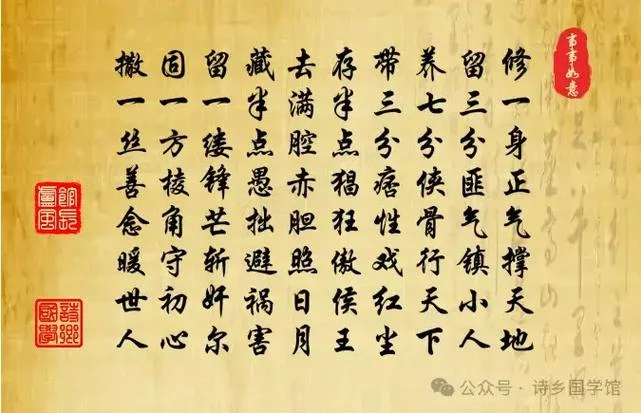 事事如意
修一身正气撑天地
留三分匪气镇小人
养七分侠骨行天下
帶三分痞性戏红尘
存半点猖狂傲侯王
去满腔赤胆照日月
藏半点愚拙避祸害
留一缕锋芒斩奸尔
固一方棱角守初心
撒一丝善念暖世人
館長
詩鄉
國學
公众号 · 诗乡国学馆